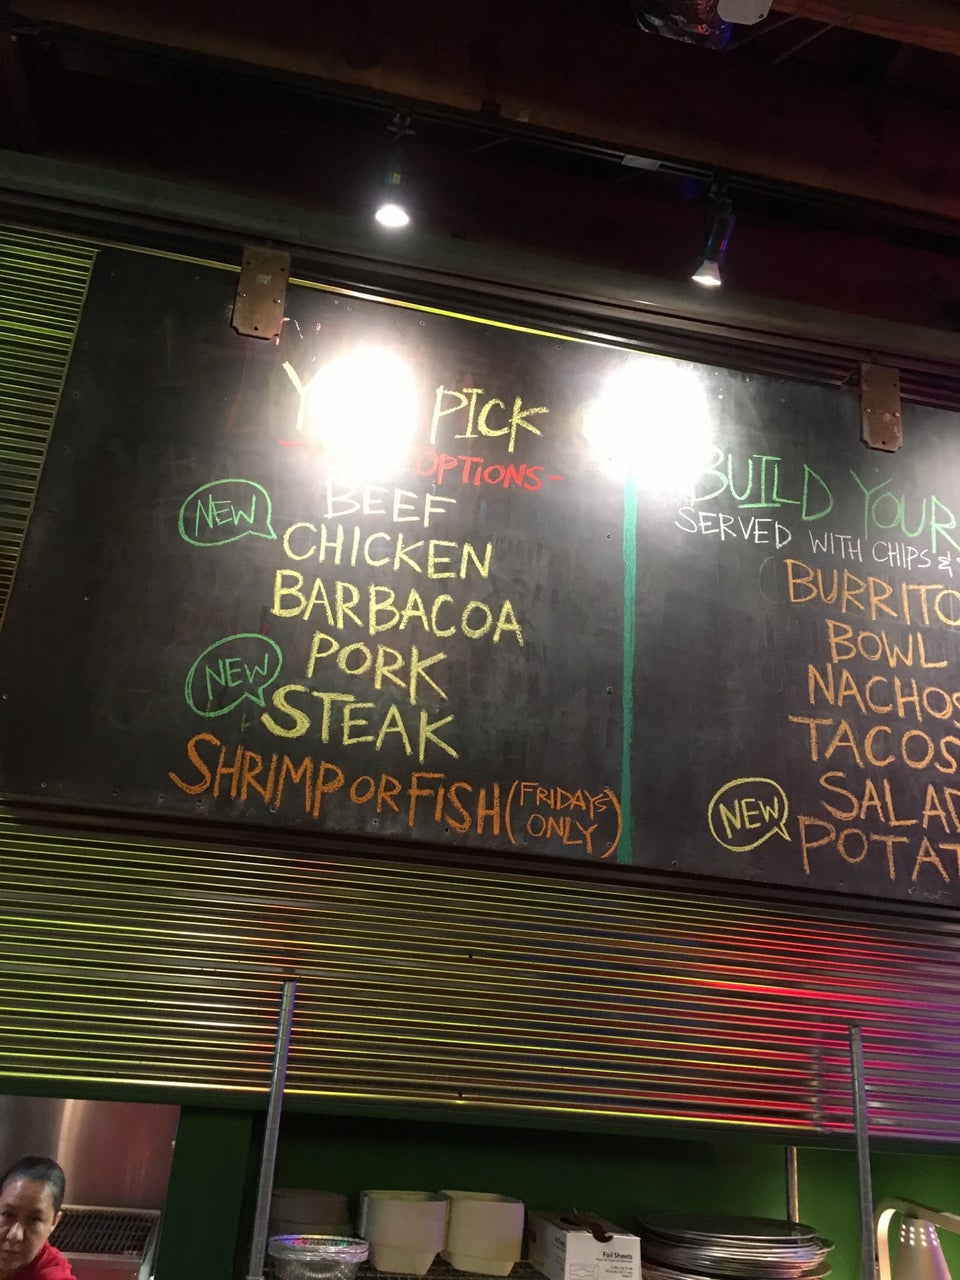 PICK
OPTIONS-
NEW
BEEF
CHICKEN
BARBACOA
PORK
NEW
STEAK
SHRIMP OR FISH (FRIDAYS ONLY)
BUILD YOUR
SERVED WITH CHIPS &
BURRITO
BOWL
NACHOS
TACOS
SALAD
NEW
POTAT
Foil Sheets